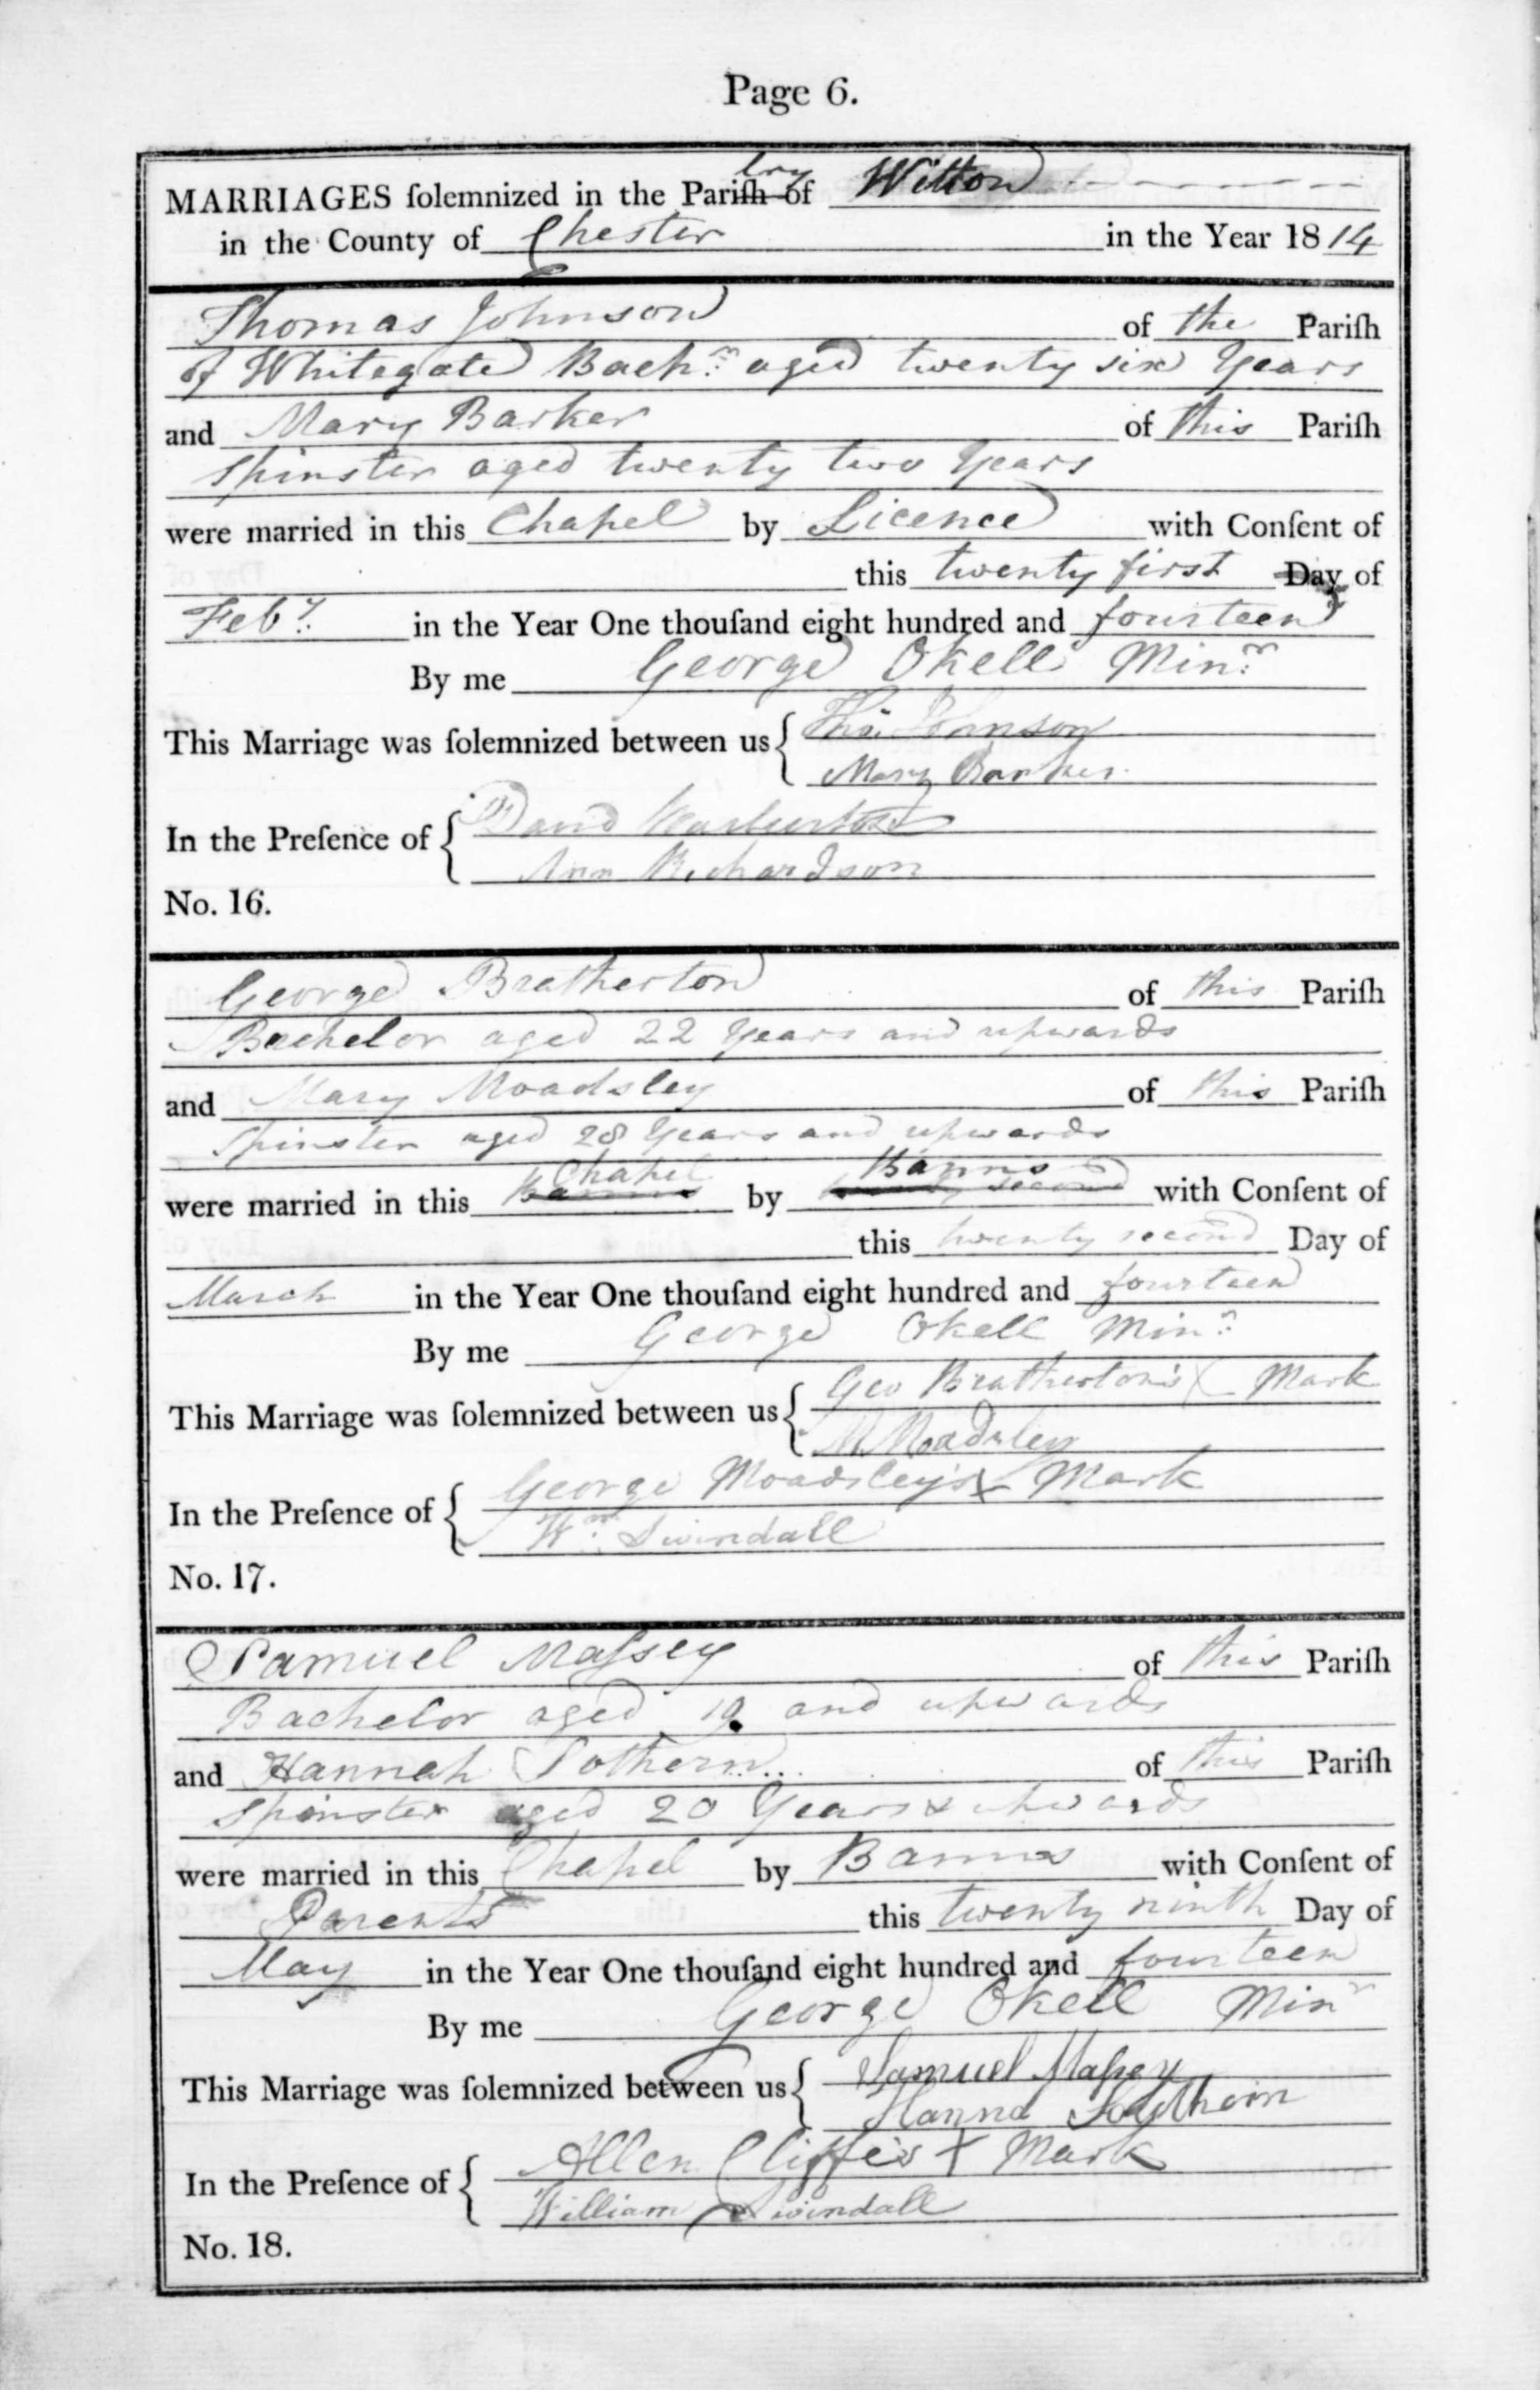 Page 6.
MARRIAGES ſolemnized in the Pariſh of Witton
in the County of Cheſter in the Year 1814
Thomas Johnson of the Pariſh
of Whitegate Bachr. aged twenty six Years
and Mary Barker of this Pariſh
Spinster aged twenty two Years
were married in this Chapel by Licence with Conſent of
this twenty first Day of
Feby. in the Year One thouſand eight hundred and fourteen
By me George Okell Minr.
This Marriage was ſolemnized between us Thos. Johnson
Mary Barker
In the Preſence of David Warburton
Ann Richardson
No. 16.
George Bratherton of this Pariſh
Bachelor aged 22 Years and upwards
and Mary Moadsley of this Pariſh
Spinster aged 28 Years and upwards
Chapel Banns
were married in this Banns by twenty second with Conſent of
this twenty second Day of
March in the Year One thouſand eight hundred and fourteen
By me George Okell Minr.
This Marriage was ſolemnized between us Geo Bratherton's X Mark
M Moadsley
In the Preſence of George Moadsley's X Mark
Wm. Swindall
No. 17.
Samuel Maſsey of this Pariſh
Bachelor aged 19 and upwards
and Hannah Sothern of this Pariſh
Spinster aged 20 Years & upwards
were married in this Chapel by Banns with Conſent of
Parents this twenty ninth Day of
May in the Year One thouſand eight hundred and fourteen
By me George Okell Minr
This Marriage was ſolemnized between us Samuel Maſsey
Hanna
In the Preſence of Allen Cliffe's X Mark
William Swindall
No. 18.